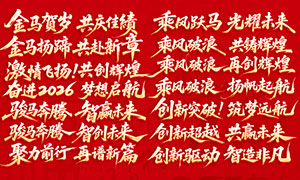 金马贺岁 共庆佳绩
金马扬蹄 共赴新章
激情飞扬！共创辉煌
奋进2026 梦想启航
骏马奔腾 智赢未来
骏马奔腾 智创未来
聚力前行 再谱新篇
乘风跃马 光耀未来
乘风破浪 共铸辉煌
乘风破浪 再创辉煌
乘风破浪 扬帆起航
创新突破！筑梦远航
创新超越 共赢未来
创新驱动 智造非凡